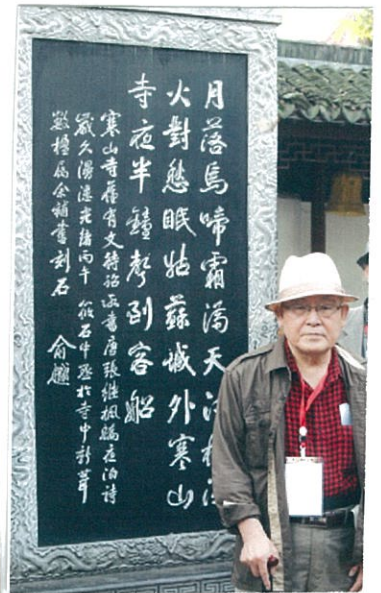 月落烏啼霜滿天江楓漁
火對愁眠姑蘇城外寒山
寺夜半鐘聲到客船
寒山寺舊有文待詔所書唐張継楓橋夜泊詩
歲久漫漶光緒丙午筱石中丞於寺中新葺
數楹属余補書刻石 俞樾